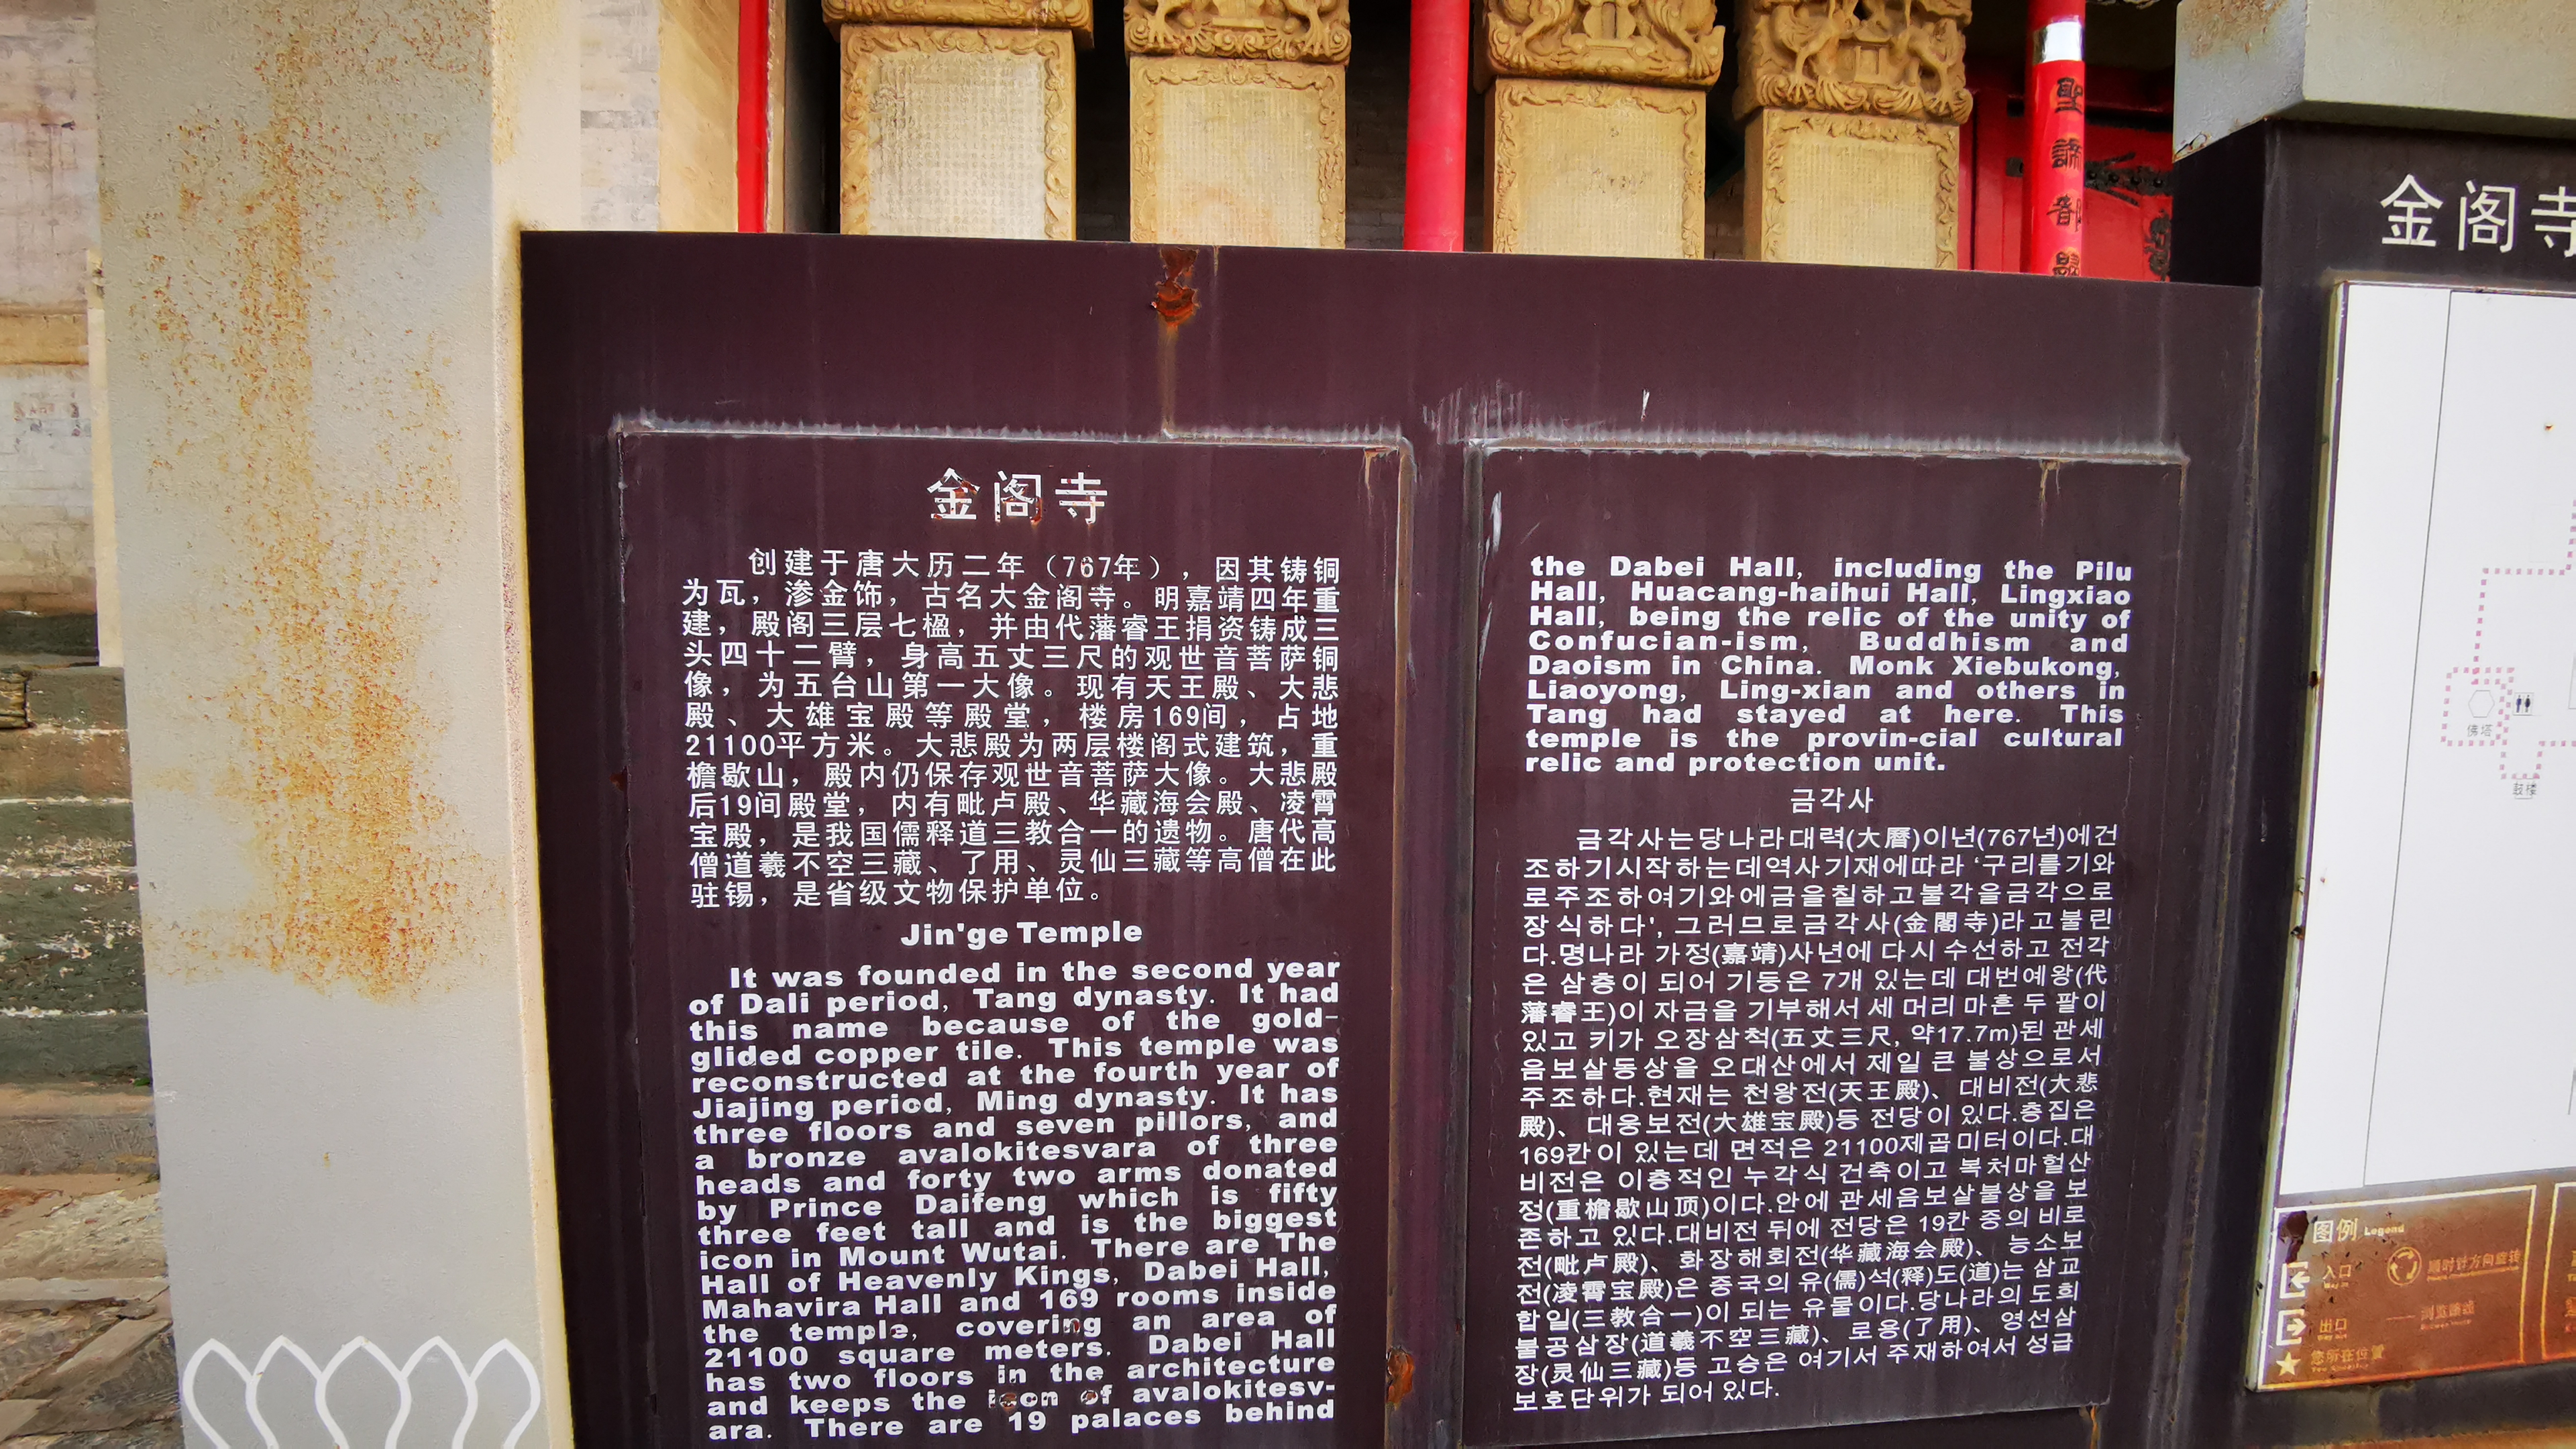 金阁寺
创建于唐大历二年（767年），因其铸铜
为瓦，渗金饰，古名大金阁寺。明嘉靖四年重
建，殿阁三层七楹，并由代藩睿王捐资铸成三
头四十二臂，身高五丈三尺的观世音菩萨铜
像，为五台山第一大像。现有天王殿、大悲
殿、大雄宝殿等殿堂，楼房169间，占地
21100平方米。大悲殿为两层楼阁式建筑，重
檐歇山，殿内仍保存观世音菩萨大像。大悲殿
后19间殿堂，内有毗卢殿、华藏海会殿、凌霄
宝殿，是我国儒释道三教合一的遗物。唐代高
僧道羲不空三藏、了用、灵仙三藏等高僧在此
驻锡，是省级文物保护单位。
Jin'ge Temple
It was founded in the second year
of Dali period, Tang dynasty. It had
this name because of the gold-
glided copper tile. This temple was
reconstructed at the fourth year of
Jiajing period, Ming dynasty. It has
three floors and seven pillors, and
a bronze avalokitesvara of three
heads and forty two arms donated
by Prince Daifeng which is fifty
three feet tall and is the biggest
icon in Mount Wutai. There are The
Hall of Heavenly Kings, Dabei Hall,
Mahavira Hall and 169 rooms inside
the temple, covering an area of
21100 square meters. Dabei Hall
has two floors in the architecture
and keeps the icon of avalokitesv-
ara. There are 19 palaces behind
the Dabei Hall, including the Pilu
Hall, Huacang-haihui Hall, Lingxiao
Hall, being the relic of the unity of
Confucian-ism, Buddhism and
Daoism in China. Monk Xiebukong,
Liaoyong, Ling-xian and others in
Tang had stayed at here. This
temple is the provin-cial cultural
relic and protection unit.
금각사
금각사는당나라대력(大曆)이년(767년)에건
조하기시작하는데역사기재에따라 '구리를기와
로주조하여기와에금을칠하고불각을금각으로
장식하다', 그러므로금각사(金閣寺)라고불린
다.명나라 가정(嘉靖)사년에 다시 수선하고 전각
은 삼층이 되어 기둥은 7개 있는데 대번예왕(代
藩睿王)이 자금을 기부해서 세 머리 마흔 두 팔이
있고 키가 오장삼척(五丈三尺, 약17.7m)된 관세
음보살동상을 오대산에서 제일 큰 불상으로서
주조하다.현재는 천왕전(天王殿)、대비전(大悲
殿)、대웅보전(大雄宝殿)등 전당이 있다.층집은
169칸이 있는데 면적은 21100제곱미터이다.대
비전은 이층적인 누각식 건축이고 복처마헐산
정(重檐歇山顶)이다.안에 관세음보살불상을 보
존하고 있다.대비전 뒤에 전당은 19칸 중의 비로
전(毗卢殿)、화장해회전(华藏海会殿)、능소보
전(凌霄宝殿)은 중국의 유(儒)석(释)도(道)는 삼교
합일(三教合一)이 되는 유물이다.당나라의 도희
불공삼장(道羲不空三藏)、로용(了用)、영선삼
장(灵仙三藏)등 고승은 여기서 주재하여서 성급
보호단위가 되어 있다.
金阁寺
佛塔
鼓楼
图例 Legend
入口
出口
您所在位置
顺时针方向旋转